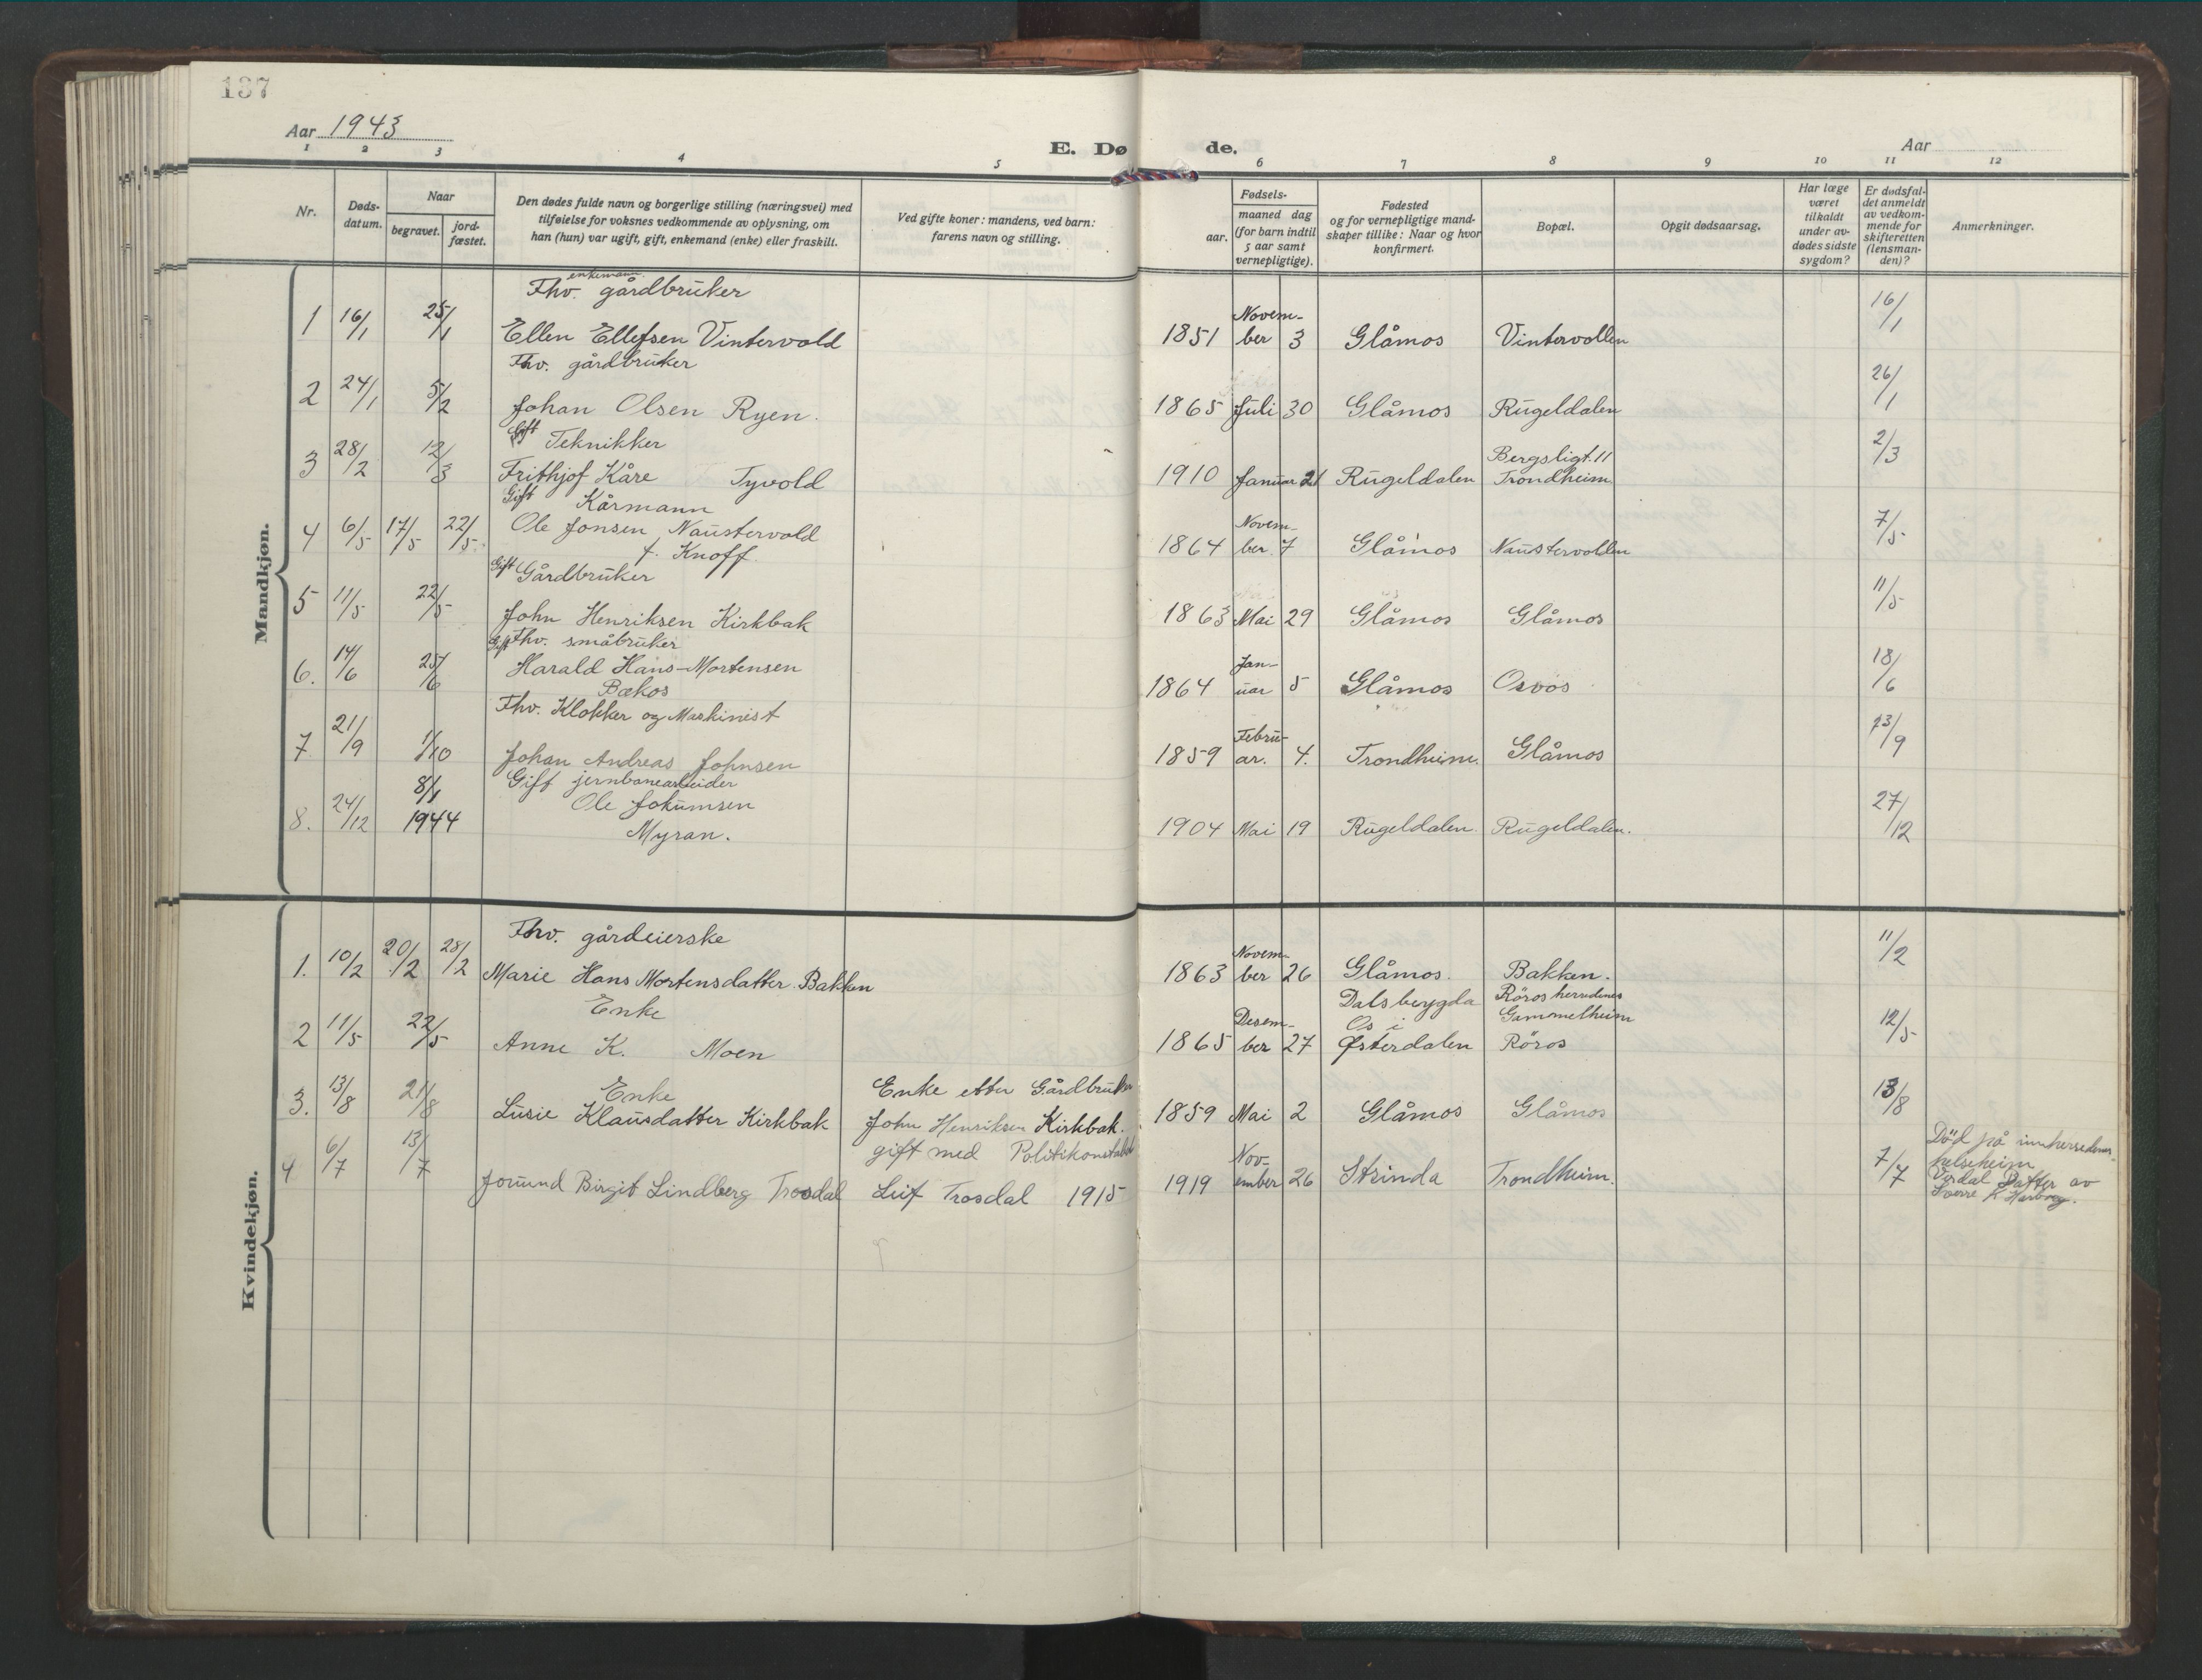 137
Aar 1943
E. Døde.
Aar
1 2 3 4 5 6 7 8 9 10 11 12
Nr.
Døds-
datum.
Naar
begravet.
jord-
fæstet.
Den dødes fulde navn og borgerlige stilling (næringsvei) med
tilføielse for voksnes vedkommende av oplysning, om
han (hun) var ugift, gift, enkemand (enke) eller fraskilt.
Ved gifte koner: mandens, ved barn:
farens navn og stilling.
Fødsels-
aar.
maaned dag
(for barn indtil
5 aar samt
vernepligtige).
Fødested
og for vernepligtige mand-
skaper tillike: Naar og hvor
konfirmert.
Bopæl.
Opgit dødsaarsag.
Har læge
været
tilkaldt
under av-
dødes sidste
sygdom?
Er dødsfal-
det anmeldt
av vedkom-
mende for
skifteretten
(lensman-
den)?
Anmerkninger.
Mandkjøn.
enkemann.
Fhv. gårdbruker
1 16/1 25/1 Ellen Ellefsen Vintervold 1851 Novem-
ber 3 Glåmos Vintervollen 16/1
Fhv. gårdbruker
2 24/1 5/2 Johan Olsen Ryen. 1865 Juli 30 Glåmos Rugeldalen 26/1
Gift Teknikker
3 28/2 12/3 Frithjof Kåre Tyvold 1910 Januar 21 Rugeldalen Bergsligt. 11
Trondheim 2/3
Gift Kårmann
4 6/5 17/5 22/5 Ole Jonsen Naustervold
f. Knoff. 1864 Novem-
ber 7 Glåmos Naustervollen 7/5
Gift Gårdbruker
5 11/5 22/5 John Henriksen Kirkbak 1863 Mai 29 Glåmos Glåmos 11/5
Gift Fhv. småbruker
6. 14/6 25/6 Harald Hans-Mortensen
Bækos 1864 Jan-
uar 5 Glåmos Osvos 18/6
Fhv. Klokker og Maskinist
7. 21/9 1/10 Johan Andreas Johnsen 1859 Febru-
ar. 4. Trondheim. Glåmos 23/9
Gift jernbanearbeider
8. 24/12 8/1
1944 Ole Jokumsen
Myran. 1904 Mai 19 Rugeldalen. Rugeldalen. 27/12
Kvindekjøn.
Fhv. gårdeierske
1. 10/2 20/2 28/2 Marie Hans Mortensdatter Bakken 1863 Novem-
ber 26 Glåmos. Bakken. 11/2
Enke
2 11/5 22/5 Anne K. Moen 1865 Desem-
ber 27 Dalsbeygda
Os i
Østerdalen Röros herredenes
Gammelheim
Röros 12/5
Enke
3. 13/8 21/8 Lusie Klausdatter Kirkbak Enke etter Gårdbruker
John Henriksen Kirkbak. 1859 Mai 2 Glåmos Glåmos 13/8
4 6/7 13/7 Jorund Birgit Lindberg Trosdal gift med Politikonstabel
Leif Trosdal 1915 1919 Nov-
ember 26 Strinda Trondheim. 7/7 Död på innherredenes
helseheim
Verdal Datter av
Sverre Harborg.